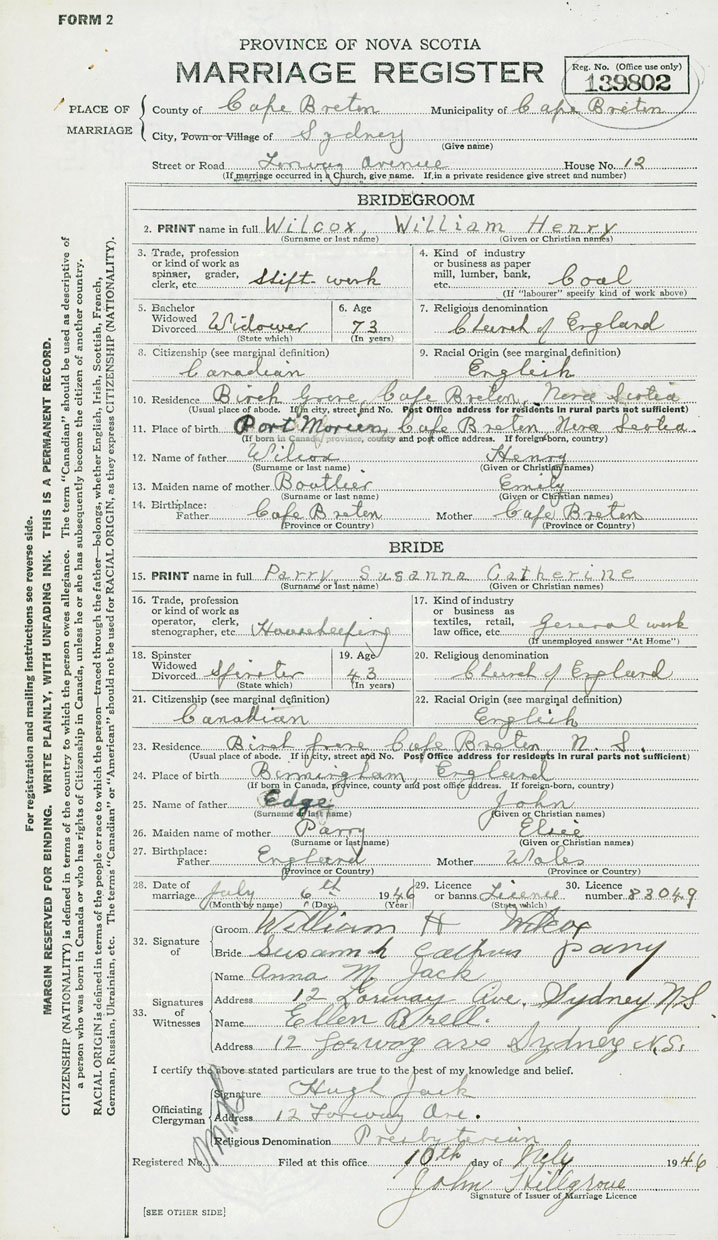 FORM 2
PROVINCE OF NOVA SCOTIA
MARRIAGE REGISTER
Reg. No. (Office use only)
139802
PLACE OF MARRIAGE
County of Cape Breton Municipality of Cape Breton
City, Town or Village of Sydney
(Give name)
Street or Road Avenue House No. 12
(If marriage occurred in a Church, give name. If in a private residence give street and number)
BRIDEGROOM
2. PRINT name in full Wilcox, William Henry
(Surname or last name) (Given or Christian names)
3. Trade, profession or kind of work as spinner, grader, clerk, etc. Shift work
4. Kind of industry or business as paper mill, lumber, bank, etc. Coal
(If "labourer" specify kind of work above)
5. Bachelor Widowed Divorced Widower
(State which)
6. Age 73
(In years)
7. Religious denomination Church of England
8. Citizenship (see marginal definition) Canadian
9. Racial Origin (see marginal definition) English
10. Residence Birch Grove, Cape Breton, Nova Scotia
(Usual place of abode. If in city, street and No. Post Office address for residents in rural parts not sufficient)
11. Place of birth Port Morien, Cape Breton, Nova Scotia.
(If born in Canada, province, county and post office address. If foreign-born, country)
12. Name of father Wilcox Henry
(Surname or last name) (Given or Christian names)
13. Maiden name of mother Boutlier Emily
(Surname or last name) (Given or Christian names)
14. Birthplace: Father Cape Breton Mother Cape Breton
(Province or Country) (Province or Country)
BRIDE
15. PRINT name in full Parry Susanna Catherine
(Surname or last name) (Given or Christian names)
16. Trade, profession or kind of work as operator, clerk, stenographer, etc. Housekeeping
17. Kind of industry or business as textiles, retail, law office, etc. General work
(If unemployed answer "At Home")
18. Spinster Widowed Divorced Spinster
(State which)
19. Age 43
(In years)
20. Religious denomination Church of England
21. Citizenship (see marginal definition) Canadian
22. Racial Origin (see marginal definition) English
23. Residence Birch Grove Cape Breton, N. S.
(Usual place of abode. If in city, street and No. Post Office address for residents in rural parts not sufficient)
24. Place of birth Birmingham, England
(If born in Canada, province, county and post office address. If foreign-born, country)
25. Name of father Edge John
(Surname or last name) (Given or Christian names)
26. Maiden name of mother Parry Elsie
(Surname or last name) (Given or Christian names)
27. Birthplace: Father England Mother Wales
(Province or Country) (Province or Country)
28. Date of marriage July 6th 1946
(Month by name) (Day) (Year)
29. Licence or banns Licence
(State which)
30. Licence number 83049
32. Signature of
Groom William H Wilcox
Bride Parry
33. Signatures of Witnesses
Name Anna M. Jack
Address 12 Ave. Sydney N.S
Name Ellen
Address 12 ave Sydney N.S.
I certify the above stated particulars are true to the best of my knowledge and belief.
Officiating Clergyman
Signature Hugh Jack
Address 12 Ave.
Religious Denomination Presbyterian
Registered No. Filed at this office 10th day of July 1946
John Hillgrove
Signature of Issuer of Marriage Licence
[SEE OTHER SIDE]
For registration and mailing instructions see reverse side.
MARGIN RESERVED FOR BINDING. WRITE PLAINLY, WITH UNFADING INK. THIS IS A PERMANENT RECORD.
CITIZENSHIP (NATIONALITY) is defined in terms of the country to which the person owes allegiance. The term "Canadian" should be used as descriptive of
a person who was born in Canada or who has rights of Citizenship in Canada, unless he or she has subsequently become the citizen of another country.
RACIAL ORIGIN is defined in terms of the people or race to which the person—traced through the father—belongs, whether English, Irish, Scottish, French,
German, Russian, Ukrainian, etc. The terms "Canadian" or "American" should not be used for RACIAL ORIGIN, as they express CITIZENSHIP (NATIONALITY).